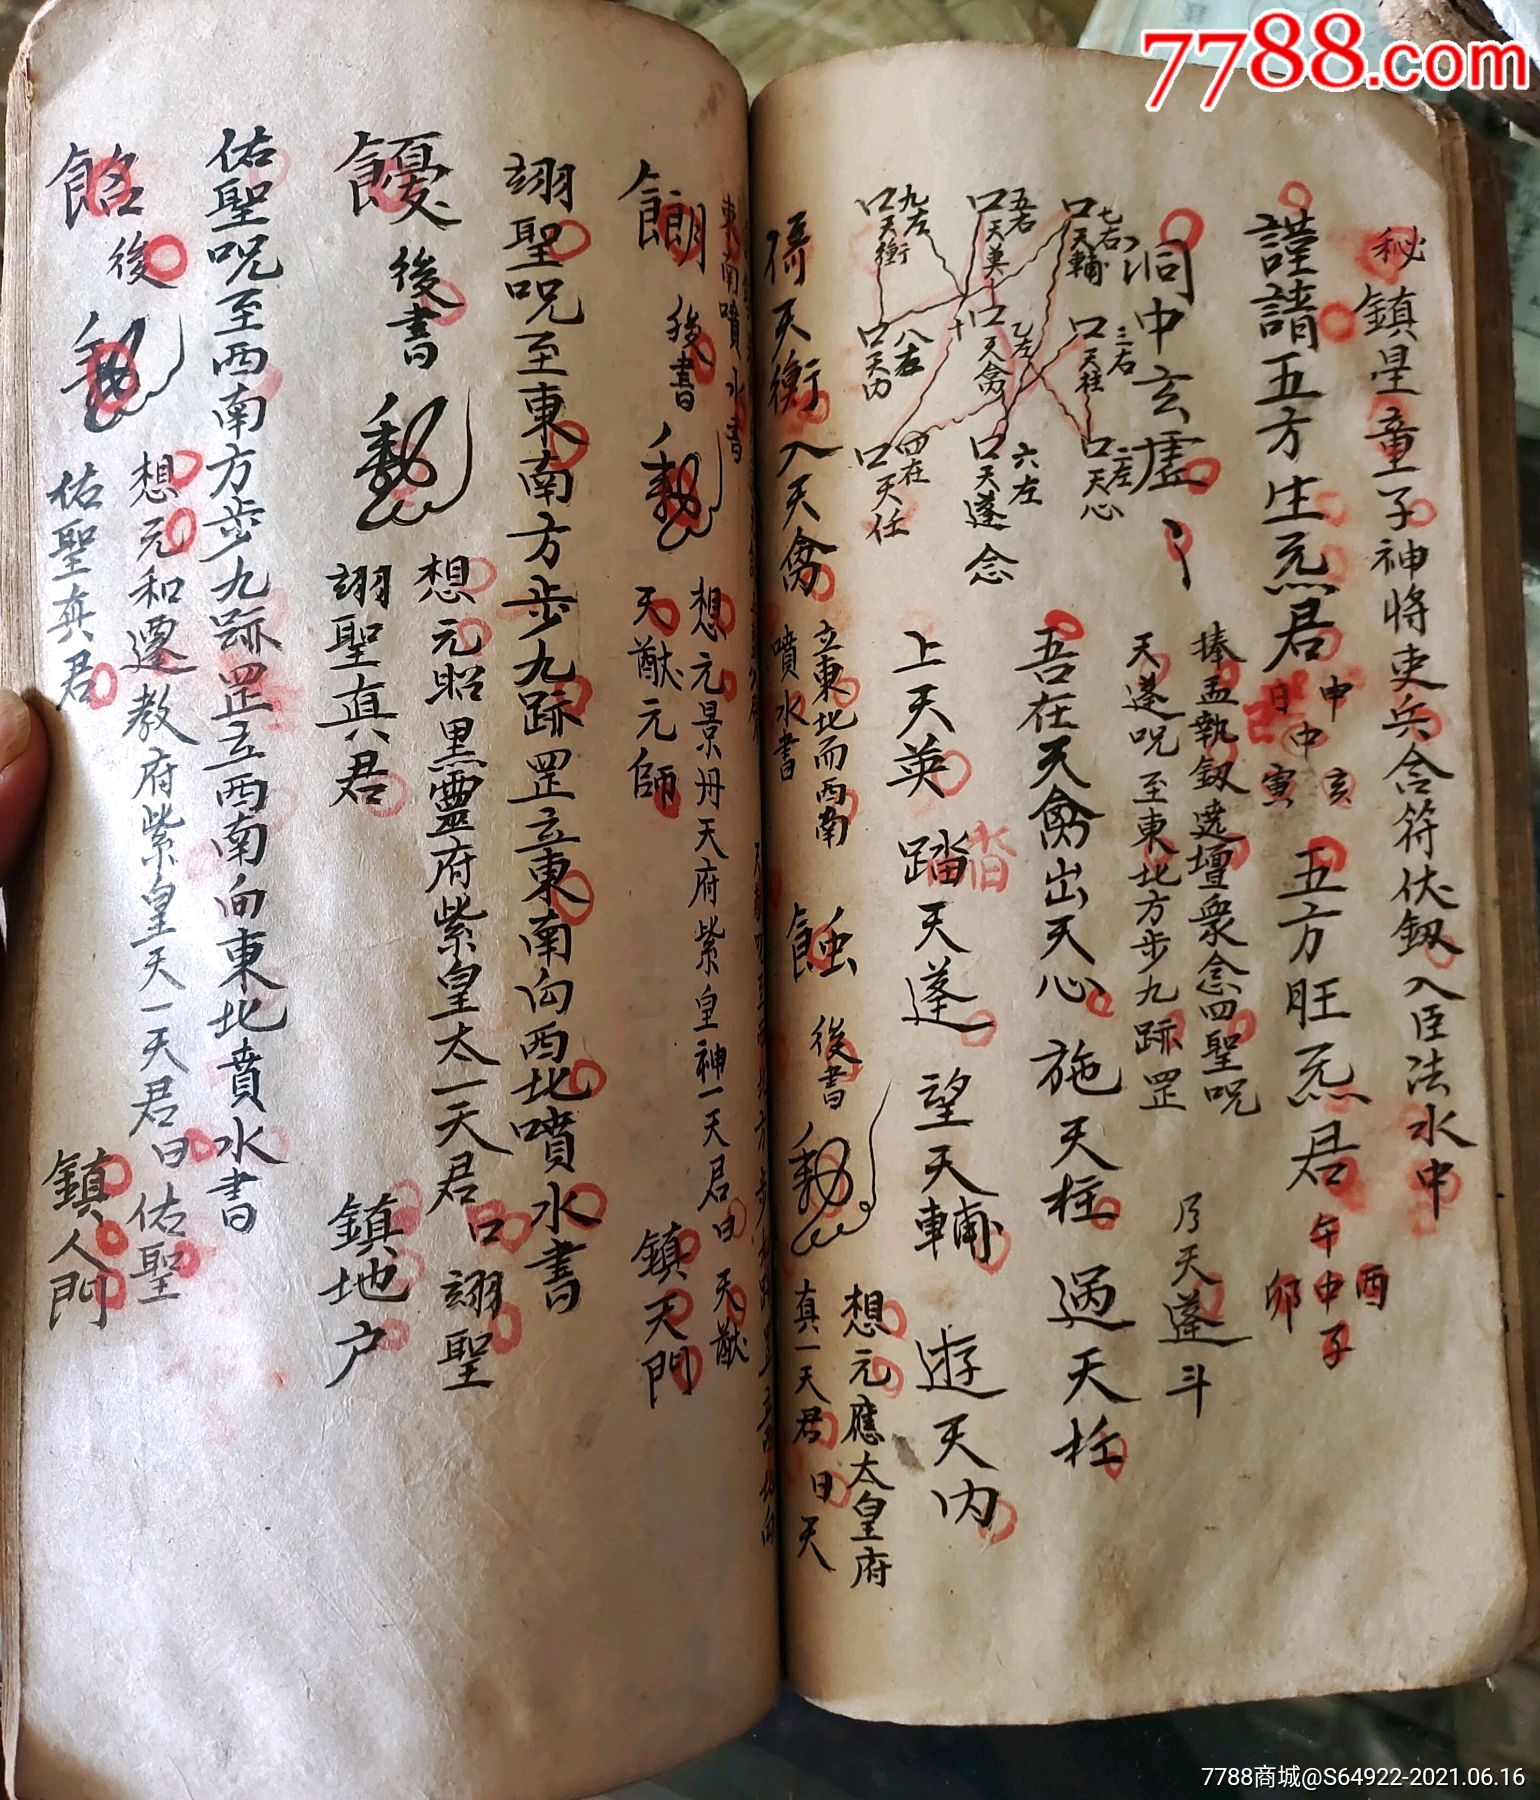 7788.com
秘
鎮星童子神将吏兵含符伏釼入臣法水中
謹請五方生炁君
申 亥
日 中
寅
五方旺炁君
午 酉
中
卯 子
捧盂執釼遶壇衆念四聖呪
天蓬呪至東北方步九跡罡
乃天蓬斗
洞中玄虛
七右
口天輔
三右
口天柱
二左
口天心
五右
口天英
乙左
口天禽
六左
口天蓬
念
九左
口天衝
八左
口天内
四在
口天任
吾在天禽出天心 施天柱 過天任
上天英 踏天蓬 望天輔 遊天内
天衡入天禽
立東北而西南
噴水書
蝕
後書
想元應太皇府
真一天君曰天
東南噴水書
後書
想元景丹天府紫皇神一天君曰天猷
天猷元師
鎮天門
翊聖呪至東南方步九跡罡立東南向西北噴水書
後書
想元昭黑靈府紫皇太一天君口翊聖
翊聖真君
鎮地户
佑聖呪至西南方步九跡罡立西南向東北賁水書
後
想元和遷教府紫皇天一天君曰佑聖
佑聖真君
鎮人門
7788商城@S64922-2021.06.16